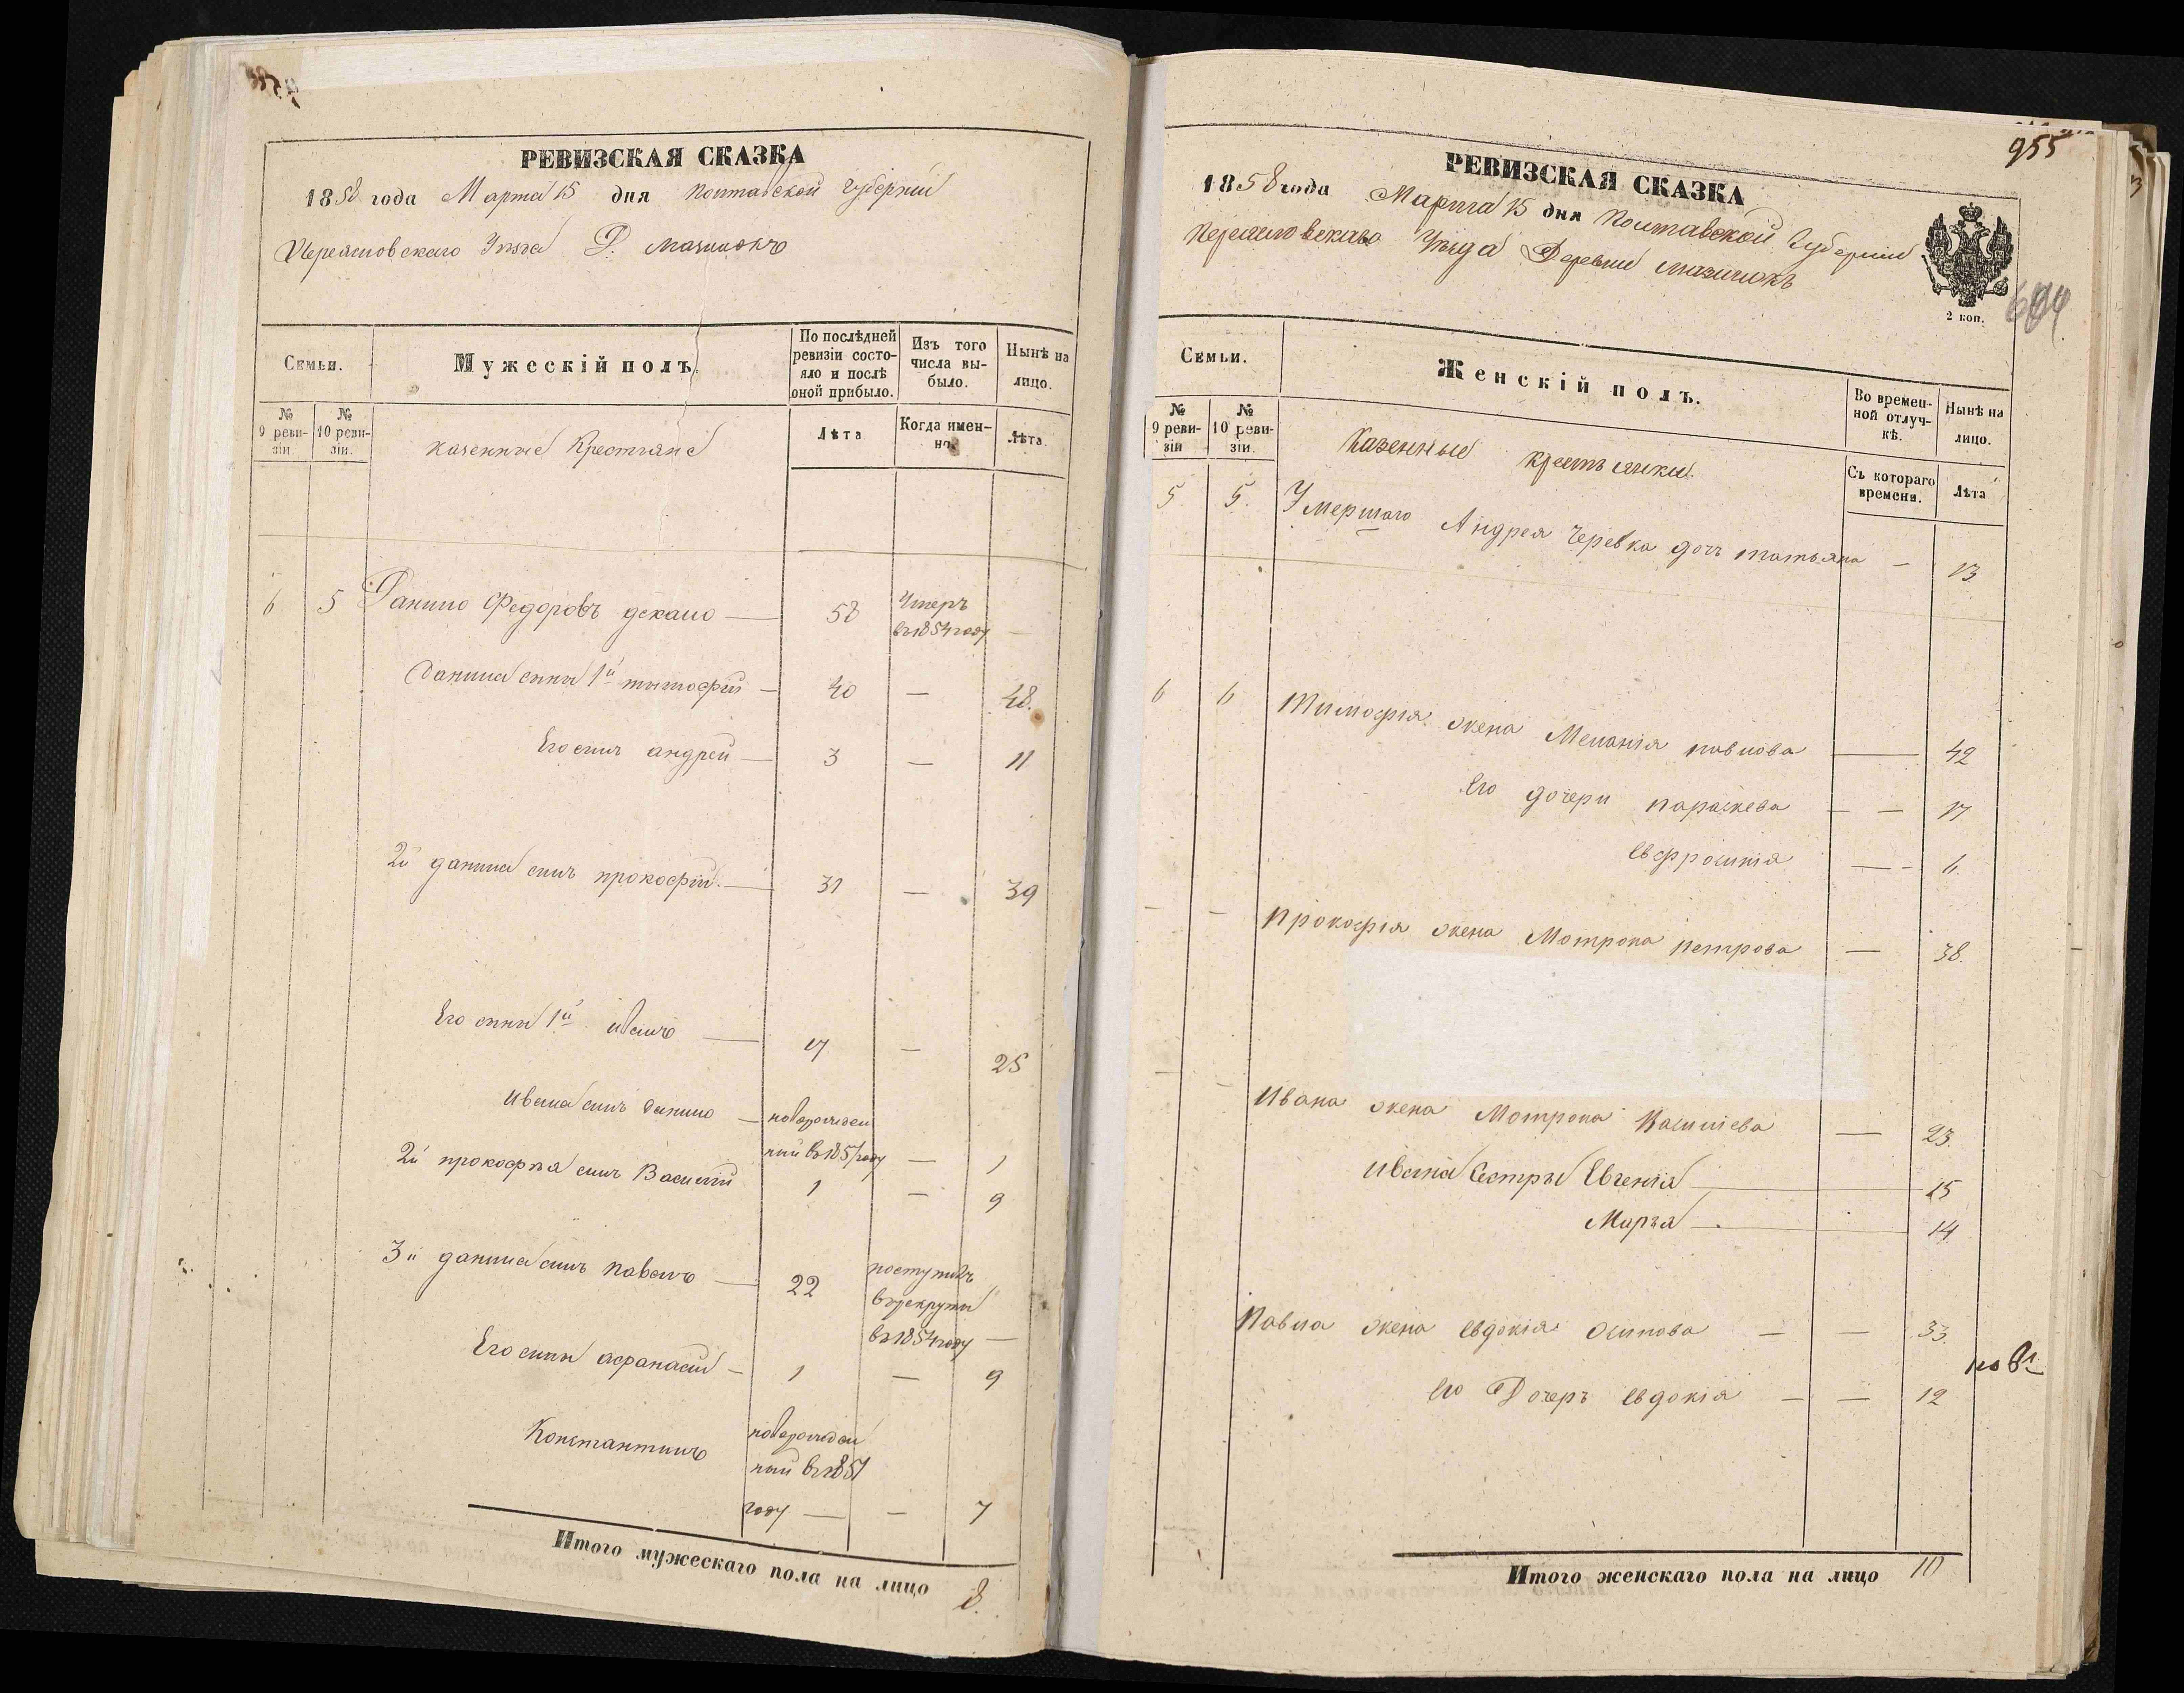 РЕВИЗСКАЯ СКАЗКА
1858 года Марта 15 дня Полтавской Губерніи
Переясловскаго Уезда Д.
Семьи.
Мужескій полъ.
По послѣдней ревизіи состояло и послѣ оной прибыло.
Изъ того числа выбыло.
Нынѣ на лицо.
№ 9 ревизіи.
№ 10 ревизіи.
казенные Крестьяне
Лѣта
Когда именно.
Лѣта.
6 5 Данило Федоровъ декало — 58 Умеръ въ 1854 году —
Данила сины 1й тымофій — 40 — 48.
Его синъ андрей — 3 — 11
2й данила синъ прокофій. — 31 — 39
Его сины 1й иванъ — 17 — 25
Ивана синъ данило — новорожденный въ 1857 году — 1
2й прокофія синъ Василій 1 — 9
3й данила синъ павелъ — 22 поступилъ в рекруты въ 1854 году —
Его сины афанасій — 1 — 9
Константинъ новорожденный въ 1851 году — — 7
Итого мужескаго пола на лицо 8.
955
РЕВИЗСКАЯ СКАЗКА
1858 года Марта 15 дня Полтавской Губерніи
Переясловскаго Уезда Деревни
2 коп.
Семьи.
Женскій полъ.
Во временной отлучкѣ.
Нынѣ на лицо.
№ 9 ревизіи
№ 10 ревизіи.
Казенные крестьянки.
Съ котораго времени.
Лѣта
5. 5. Умершаго Андрея Черевка дочь татьяна — 13.
6 6 Тимофія жена Меланія павлова — 42
Его дочери параскева — — 17
Евфросинія — — 6.
— — Прокофія жена Мотрона петрова — 38.
— — Ивана жена Мотрона Василіева — 23.
Ивана Сестры Евгенія — 15
Марья — 14
Павла жена Евдокія Осипова — — 33.
Его Дочеръ Евдокія — — 12
Итого женскаго пола на лицо 10